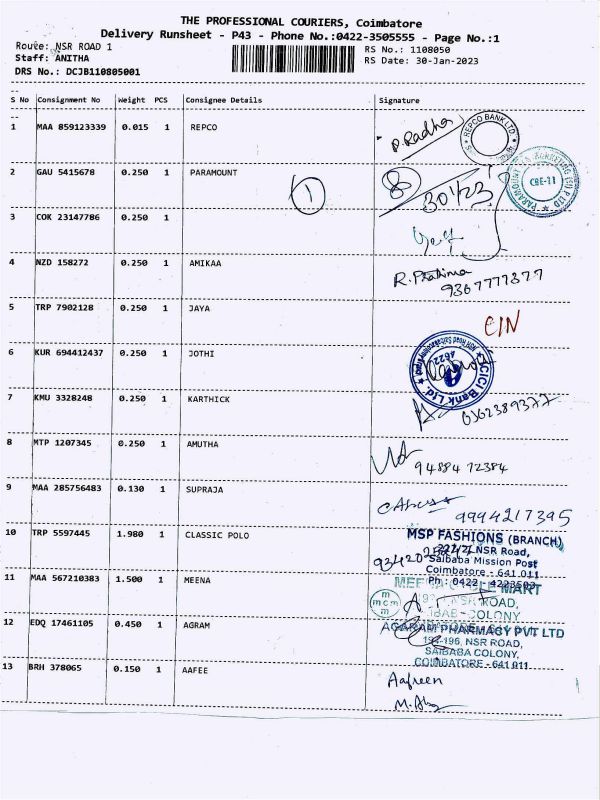 THE PROFESSIONAL COURIERS, Coimbatore
Delivery Runsheet - P43 - Phone No.:0422-3505555 - Page No.:1
Route: NSR ROAD 1
RS No.: 1108050
Staff: ANITHA
RS Date: 30-Jan-2023
DRS No.: DCJB110805001
S No Consignment No Weight PCS Consignee Details Signature
1 MAA 859123339 0.015 1 REPCO P. Radha
REPCO BANK LTD.
2 GAU 5415678 0.250 1 PARAMOUNT 1 8 30/1/23
CBE-11
3 COK 23147786 0.250 1
4 NZD 158272 0.250 1 AMIKAA R. Prathima
9367777377
5 TRP 7902128 0.250 1 JAYA EIN
6 KUR 694412437 0.250 1 JOTHI
ICICI Bank Ltd.
7 KMU 3328248 0.250 1 KARTHICK
8 MTP 1207345 0.250 1 AMUTHA
94884 72384
9 MAA 285756483 0.130 1 SUPRAJA
9994217395
10 TRP 5597445 1.980 1 CLASSIC POLO
MSP FASHIONS (BRANCH)
NSR Road,
Saibaba Mission Post
Coimbatore - 641 011
Ph : 0422 -
11 MAA 567210383 1.500 1 MEENA
MART
mcm
NSR ROAD,
COLONY
12 EDQ 17461105 0.450 1 AGRAM
AGARAM PHARMACY PVT LTD
194-196, NSR ROAD,
SAIBABA COLONY,
COIMBATORE - 641 011
13 BRH 378065 0.150 1 AAFEE
Aafreen